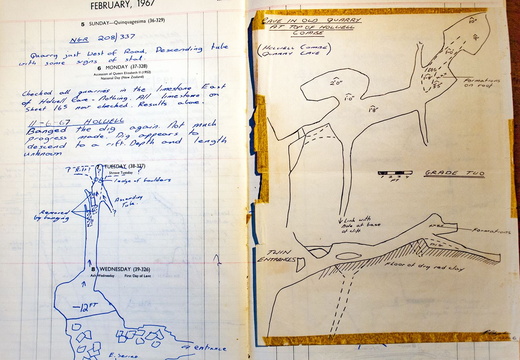 FEBRUARY, 1967
5 SUNDAY—Quinquagesima (36-329)
NGR 208/337
Quarry just West of Road. Descending tube
with some signs of stal.
6 MONDAY (37-328)
Accession of Queen Elizabeth II (1952)
National Day (New Zealand)
Checked all quarries in the limestone East
of Holwell Cave. Nothing. All limestone on
Sheet 165 now checked. Results above.
11-6-67 HOLWELL
Banged the dig again. Not much
progress made. Dig appears to
descend to a rift. Depth and length
unknown
7 TUESDAY (38-327)
Shrove Tuesday
ledge of boulders
Ascending
Tube
Removed
by banging
8 WEDNESDAY (39-326)
Ash Wednesday First Day of Lent
12 FT
entrance
CAVE IN OLD QUARRY
AT TOP OF HOLWELL
COMBE
(HOLWELL COMBE
QUARRY CAVE)
Formations
on roof
GRADE TWO
Link with
Hole at base
of cliff
TWIN
ENTRANCES
Formations
Floor of dry red clay